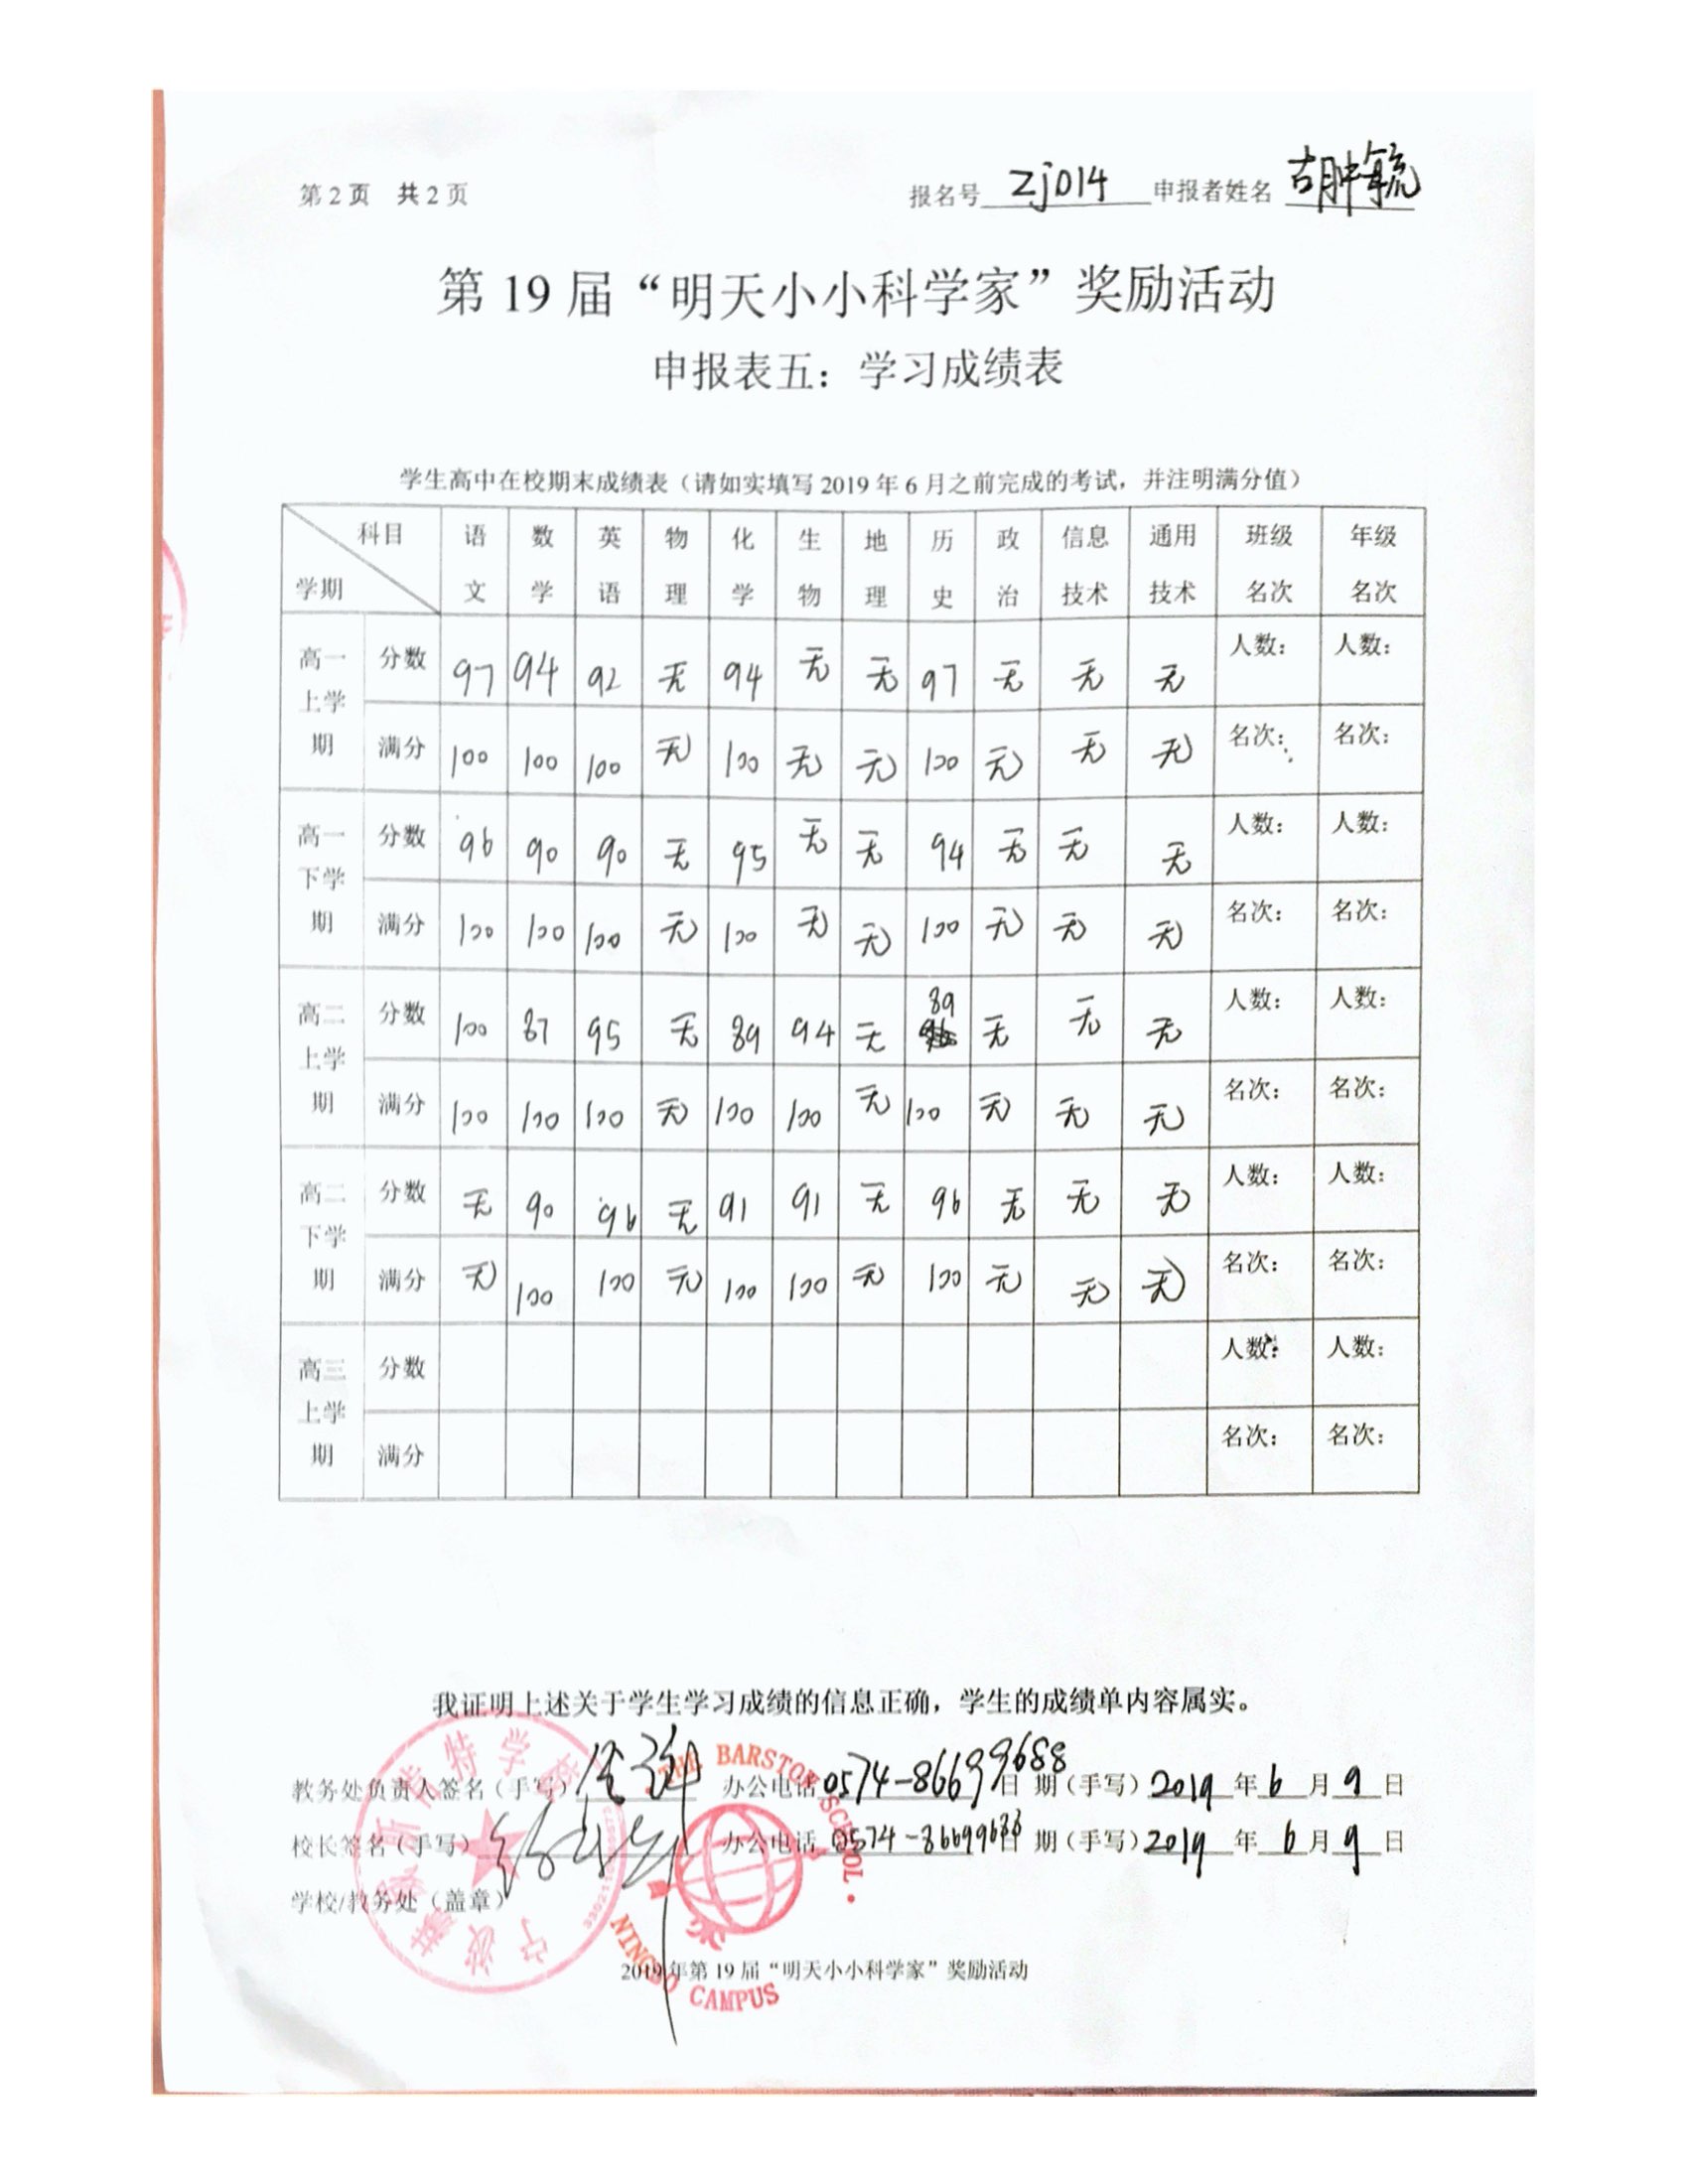 第2页 共2页 报名号 Zj014 申报者姓名 胡钟毓
第 19 届“明天小小科学家”奖励活动
申报表五：学习成绩表
学生高中在校期末成绩表（请如实填写 2019 年 6 月之前完成的考试，并注明满分值）
科目 学期 语文 数学 英语 物理 化学 生物 地理 历史 政治 信息技术 通用技术 班级名次 年级名次
高一上学期 分数 97 94 92 无 94 无 无 97 无 无 无 人数： 人数：
满分 100 100 100 无 100 无 无 100 无 无 无 名次： 名次：
高一下学期 分数 96 90 90 无 95 无 无 94 无 无 无 人数： 人数：
满分 100 100 100 无 100 无 无 100 无 无 无 名次： 名次：
高二上学期 分数 100 87 95 无 89 94 无 89 无 无 无 人数： 人数：
满分 100 100 100 无 100 100 无 100 无 无 无 名次： 名次：
高二下学期 分数 无 90 96 无 91 91 无 96 无 无 无 人数： 人数：
满分 无 100 100 无 100 100 无 100 无 无 无 名次： 名次：
高三上学期 分数 人数： 人数：
满分 名次： 名次：
我证明上述关于学生学习成绩的信息正确，学生的成绩单内容属实。
教务处负责人签名（手写） 办公电话 0574-86699688 日 期（手写）2019 年 6 月 9 日
校长签名（手写） 办公电话 0574-86699688 日 期（手写）2019 年 6 月 9 日
学校/教务处（盖章）
THE BARSTOW SCHOOL · NINGBO CAMPUS
2019 年第 19 届“明天小小科学家”奖励活动